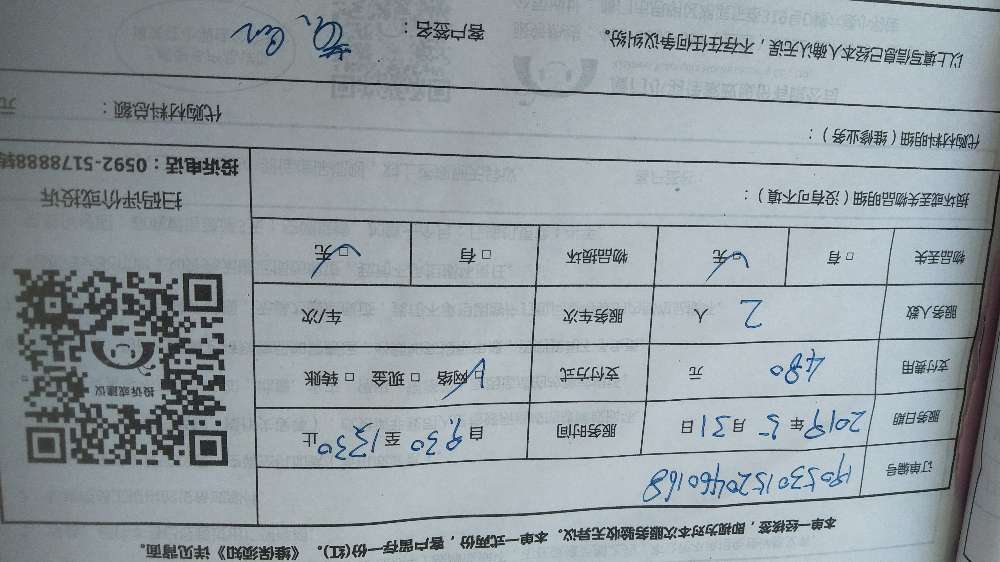 本单一经核签，即视为对本次服务验收无异议。本单一式两份，客户留存一份(红)。《维保须知》详见背面。
订单编号 1905301520460168
服务日期 2019年5月31日 服务时间 自9.30至1330止
支付费用 480元 支付方式 □网络 □现金 □转账
服务人数 2人 服务车次 车/次
物品丢失 □有 □无 物品损坏 □有 □无
投诉或建议
扫码评价或投诉
投诉电话：0592-5178888转
损坏或丢失物品明细（没有可不填）：
代购材料明细（维修业务）： 代购材料总额： 元
以上填写信息已经本人确认无误，不存在任何争议纠纷。 客户签名：